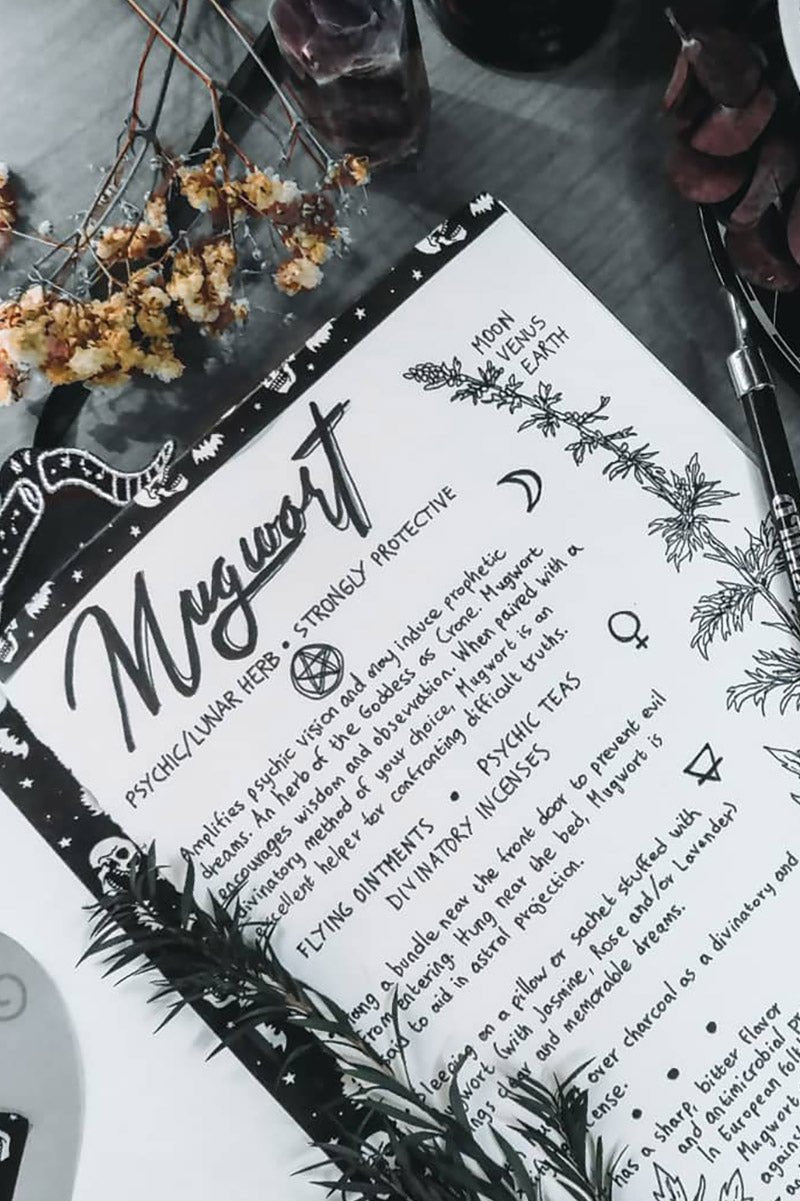 MOON
VENUS
EARTH
Mugwort
PSYCHIC/LUNAR HERB • STRONGLY PROTECTIVE
Amplifies psychic vision and may induce prophetic
dreams. An herb of the Goddess as Crone. Mugwort
encourages wisdom and observation. When paired with a
divinatory method of your choice, Mugwort is an
excellent helper for confronting difficult truths.
FLYING OINTMENTS • PSYCHIC TEAS
DIVINATORY INCENSES
Hang a bundle near the front door to prevent evil
from entering. Hung near the bed, Mugwort is
said to aid in astral projection.
Sleeping on a pillow or sachet stuffed with
Mugwort (with Jasmine, Rose and/or Lavender)
brings clear and memorable dreams.
over charcoal as a divinatory and
incense.
has a sharp, bitter flavor
and antimicrobial
In European
Mugwort
against